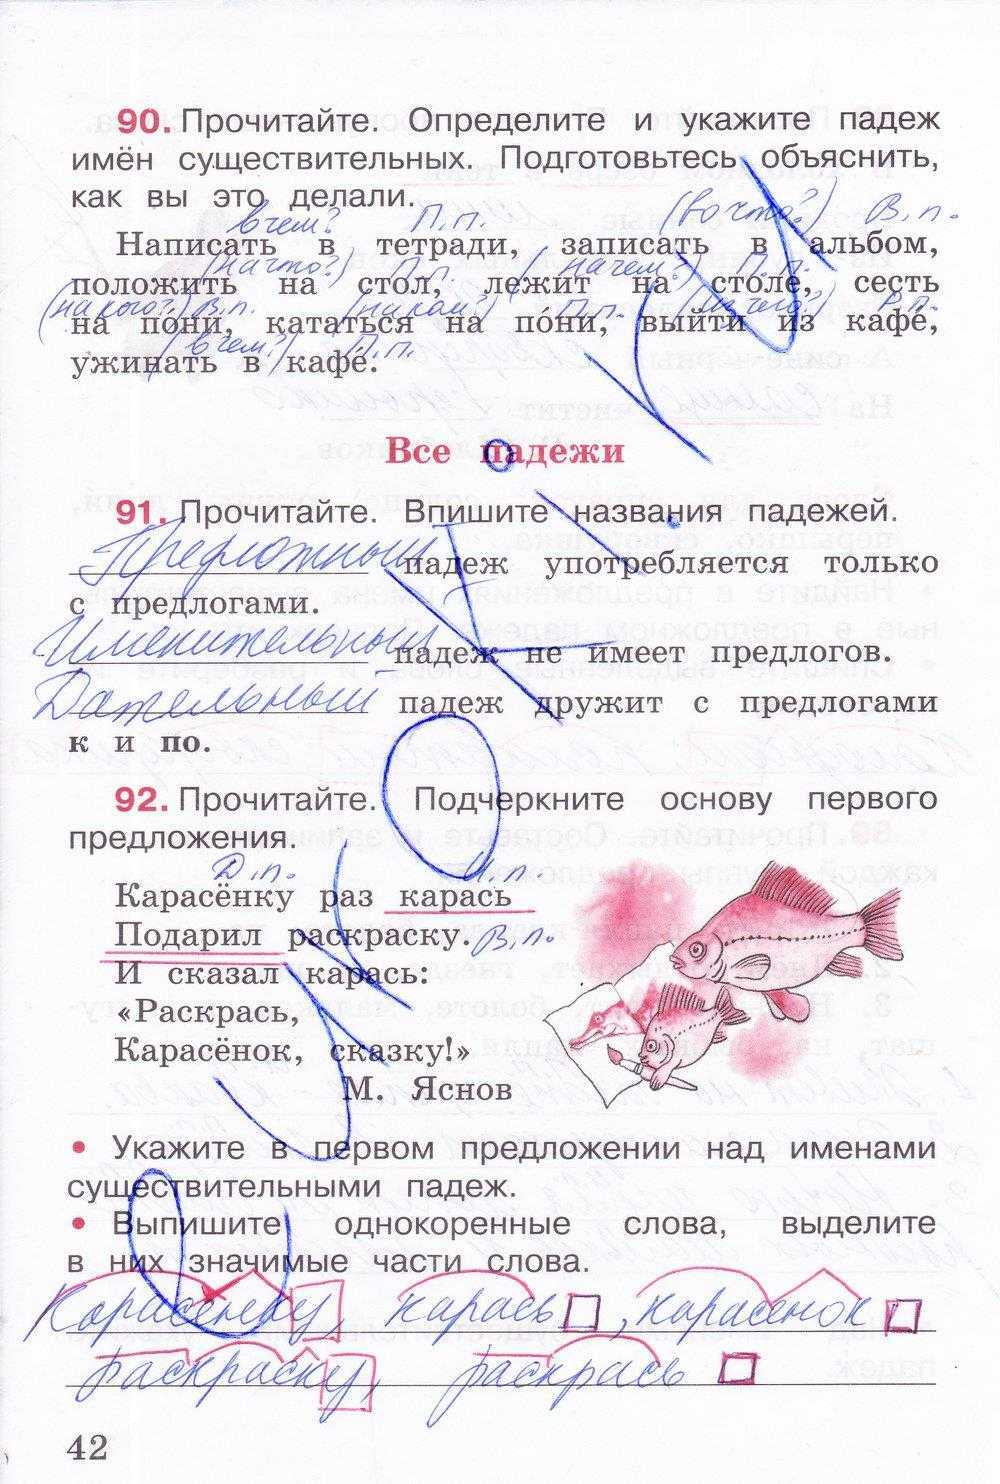 90. Прочитайте. Определите и укажите падеж
имён существительных. Подготовьтесь объяснить,
как вы это делали.
в чём? П.п. (во что?) В.п.
Написать в тетради, записать в альбом,
(на что?) П.п. (на чём?) П.п.
положить на стол, лежит на столе, сесть
(на кого?) В.п. (на ком?) П.п. (из чего?) Р.п.
на по́ни, кататься на по́ни, выйти из кафе,
(в чём?) П.п.
ужинать в кафе.
Все падежи
91. Прочитайте. Впишите названия падежей.
Предложный падеж употребляется только
с предлогами.
Именительный падеж не имеет предлогов.
Дательный падеж дружит с предлогами
к и по.
92. Прочитайте. Подчеркните основу первого
предложения.
Д.п. И.п.
Карасёнку раз карась
Подарил раскраску. В.п.
И сказал карась:
«Раскрась,
Карасёнок, сказку!»
М. Яснов
• Укажите в первом предложении над именами
существительными падеж.
• Выпишите однокоренные слова, выделите
в них значимые части слова.
Карасёнку, карась, карасёнок
раскраску, раскрась
42